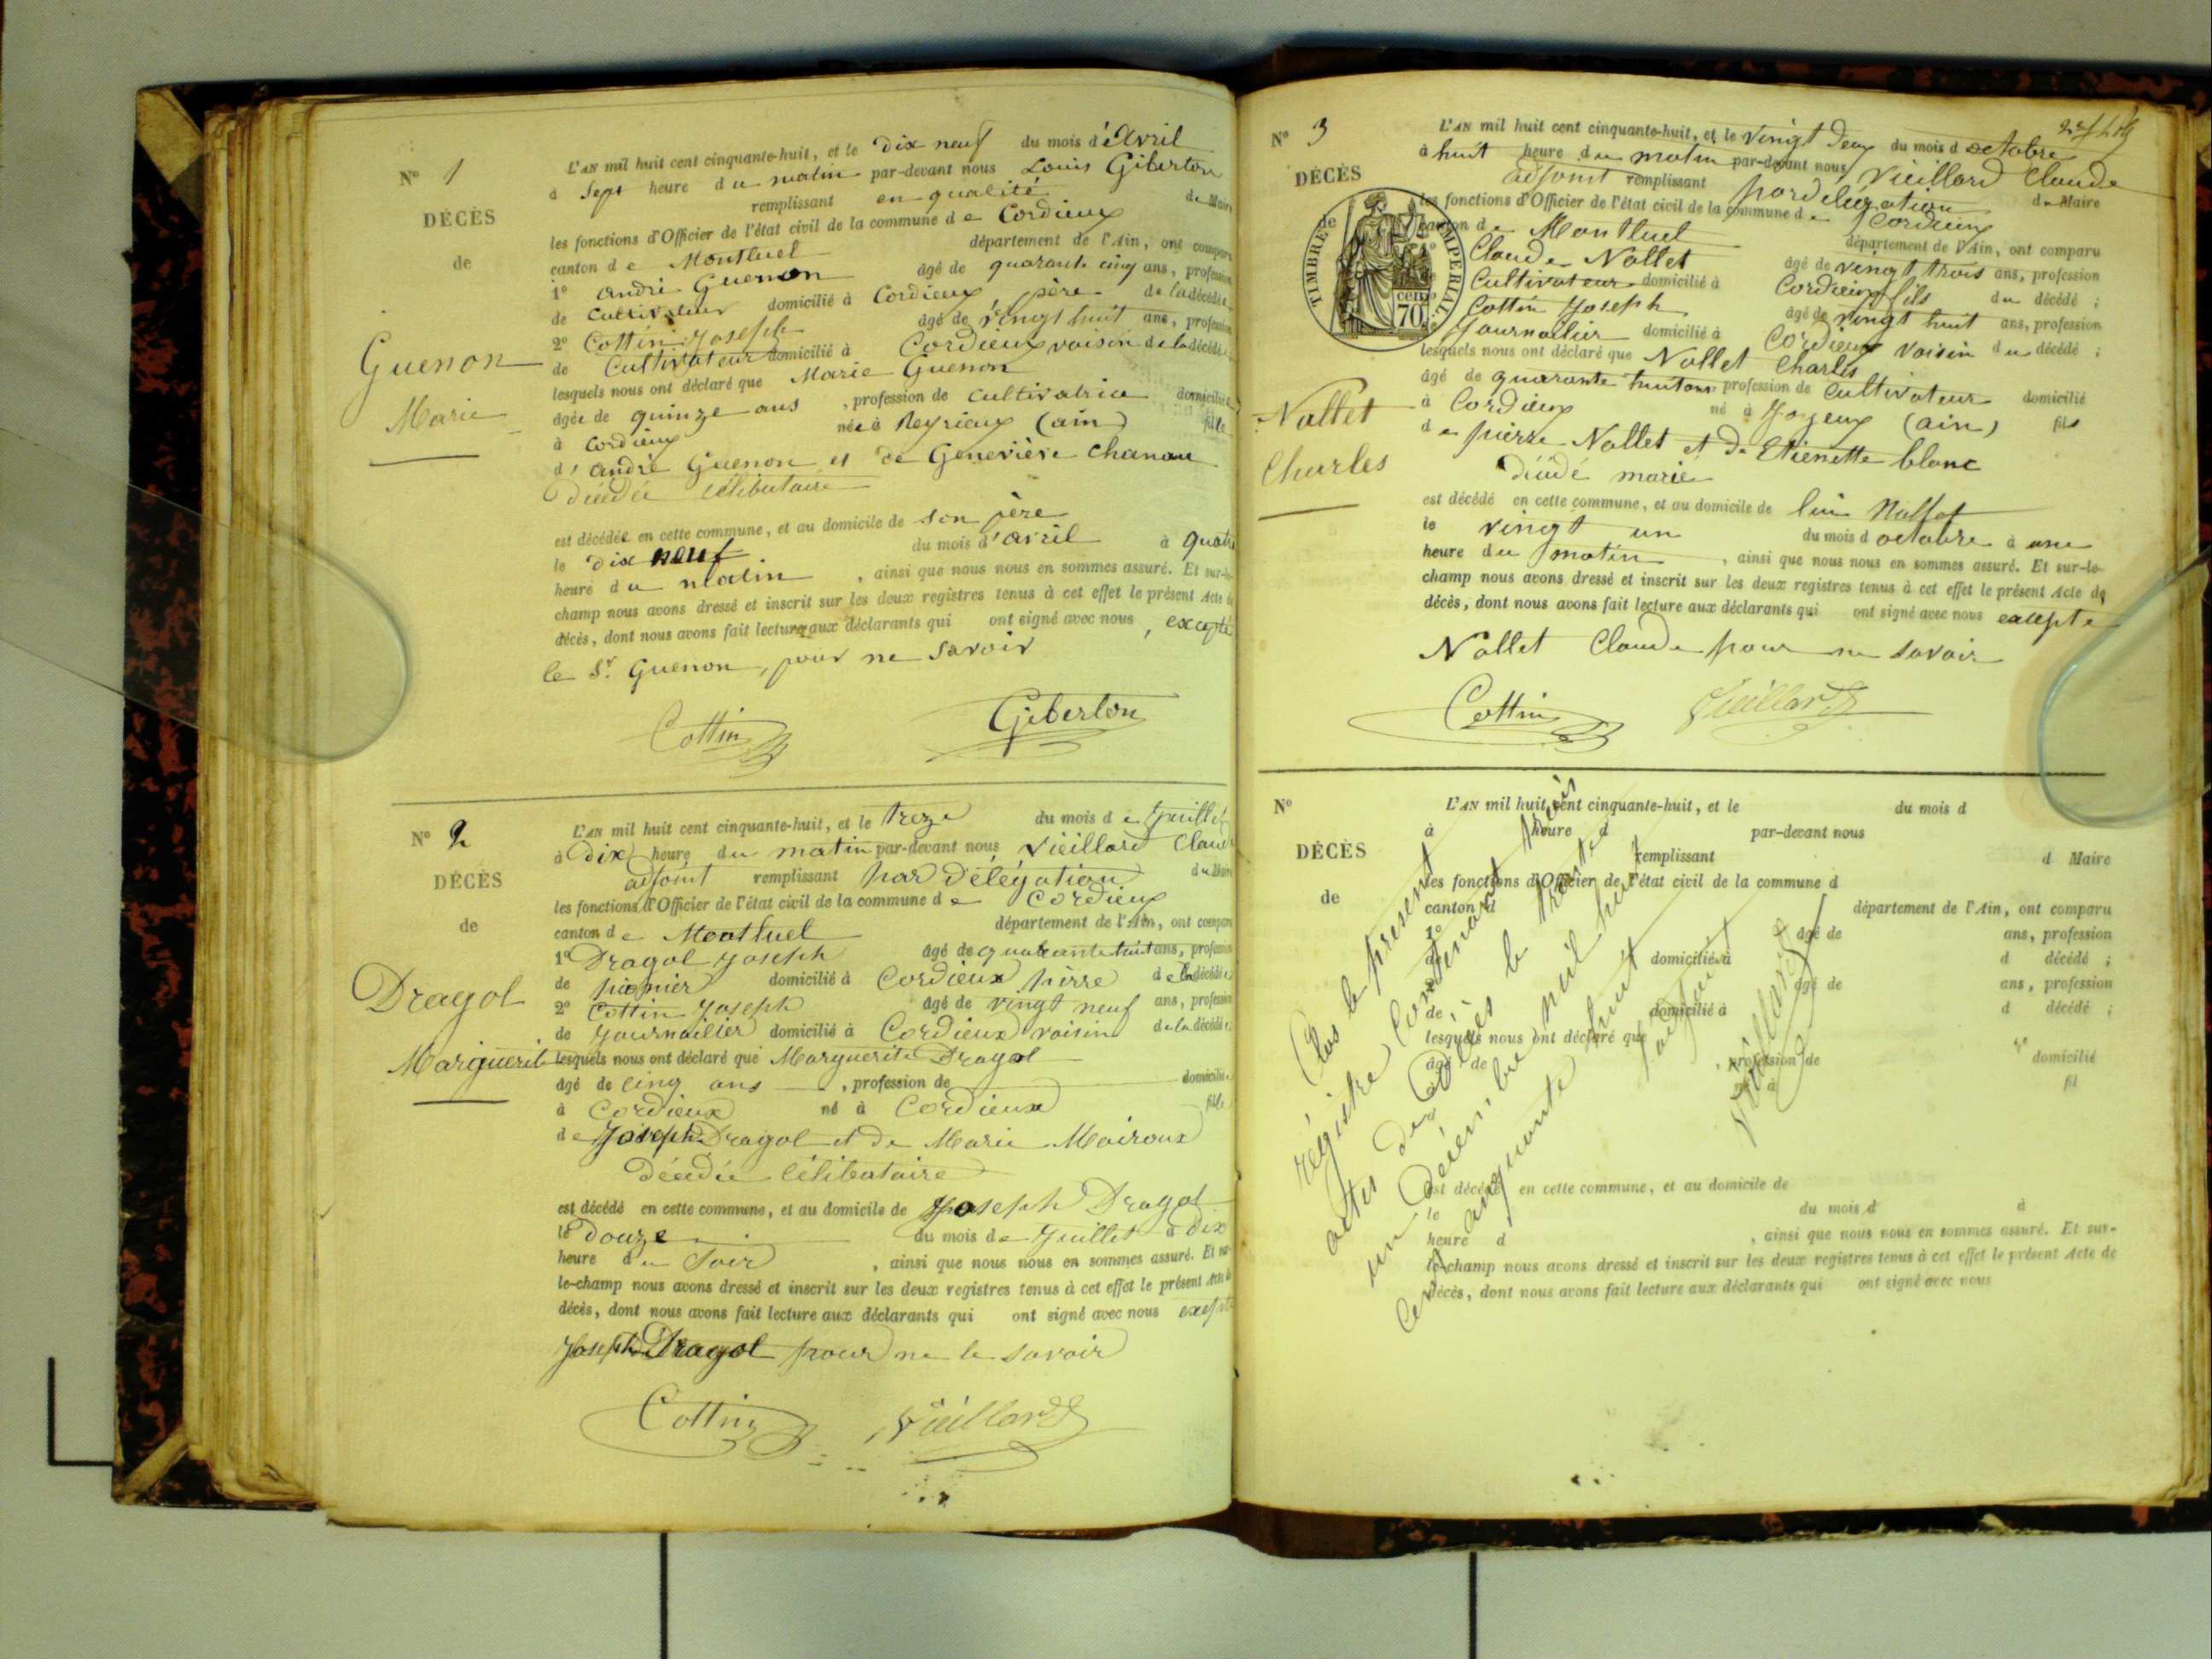 N° 1
DÉCÈS
de
Guenon
Marie
L'AN mil huit cent cinquante-huit, et le dix neuf du mois d'Avril
à sept heure du matin par-devant nous Louis Giberton
remplissant en qualité de Maire
les fonctions d'Officier de l'état civil de la commune de Cordieux
canton de Montluel département de l'Ain, ont comparu
1° andré Guenon âgé de quarante cinq ans, profession
de Cultivateur domicilié à Cordieux père de la décédée
2° Cottin Joseph âgé de vingt huit ans, profession
de Cultivateur domicilié à Cordieux voisin de la décédée
lesquels nous ont déclaré que Marie Guenon
âgée de quinze ans, profession de cultivatrice domiciliée
à Cordieux née à Reyrieux (ain) fille
d'andré Guenon et de Geneviève
Décédée célibataire
est décédée en cette commune, et au domicile de son père
le dix neuf du mois d'avril à quatre
heure du matin, ainsi que nous nous en sommes assuré. Et sur-le-
champ nous avons dressé et inscrit sur les deux registres tenus à cet effet le présent Acte de
décès, dont nous avons fait lecture aux déclarants qui ont signé avec nous, excepté
le Sr. Guenon, pour ne savoir
Cottin Giberton
N° 2
DÉCÈS
de
Dragol
Marguerite
L'AN mil huit cent cinquante-huit, et le treze du mois de Juillet
à Dix heure du matin par-devant nous Vieillard Claude
adjoint remplissant par Délégation du Maire
les fonctions d'Officier de l'état civil de la commune de Cordieux
canton de Montluel département de l'Ain, ont comparu
1° Dragol Joseph âgé de quarante huit ans, profession
de domicilié à Cordieux de la décédée
2° Cottin Joseph âgé de vingt neuf ans, profession
de Journailier domicilié à Cordieux voisin de la décédée
lesquels nous ont déclaré que Marguerite Dragol
âgé de cinq ans, profession de domiciliée
à Cordieux né à Cordieux fille
de Joseph Dragol et de Marie Mairoux
décédée célibataire
est décédé en cette commune, et au domicile de Joseph Dragol
le douze du mois de Juillet à dix
heure du Soir, ainsi que nous nous en sommes assuré. Et sur-
le-champ nous avons dressé et inscrit sur les deux registres tenus à cet effet le présent Acte de
décès, dont nous avons fait lecture aux déclarants qui ont signé avec nous excepté
Joseph Dragol pour ne le savoir
Cottin Vieillard
N° 3
DÉCÈS
TIMBRE IMPERIAL
70 cen
Nallet
Charles
L'AN mil huit cent cinquante-huit, et le vingt deux du mois d octobre
à huit heure du matin par-devant nous Vieillard Claude
adjoint remplissant par délégation du Maire
les fonctions d'Officier de l'état civil de la commune de Cordieux
canton de Montluel département de l'Ain, ont comparu
1° Claude Nallet âgé de vingt trois ans, profession
de Cultivateur domicilié à Cordieux fils du décédé ;
Cottin Joseph âgé de vingt huit ans, profession
Journailier domicilié à Cordieux voisin du décédé ;
lesquels nous ont déclaré que Nallet Charles
âgé de quarante huit ans profession de cultivateur domicilié
à Cordieux né à Joyeux (ain) fils
de pierre Nallet et de Etienette blanc
Décédé marié
est décédé en cette commune, et au domicile de lui Nallet
le vingt un du mois d octobre à une
heure du matin, ainsi que nous nous en sommes assuré. Et sur-le-
champ nous avons dressé et inscrit sur les deux registres tenus à cet effet le présent Acte de
décès, dont nous avons fait lecture aux déclarants qui ont signé avec nous excepte
Nallet Claude pour ne savoir
Cottin Vieillard
N°
DÉCÈS
de
L'AN mil huit cent cinquante-huit, et le du mois d
à heure d par-devant nous
remplissant d Maire
les fonctions d'Officier de l'état civil de la commune d
canton d département de l'Ain, ont comparu
1° âgé de ans, profession
de domicilié à d décédé ;
2° âgé de ans, profession
de domicilié à d décédé ;
lesquels nous ont déclaré que
âgé de, profession de domicilié
à né à fil
est décédé en cette commune, et au domicile de
le du mois d à
heure d, ainsi que nous nous en sommes assuré. Et sur-
le-champ nous avons dressé et inscrit sur les deux registres tenus à cet effet le présent Acte de
décès, dont nous avons fait lecture aux déclarants qui ont signé avec nous
Clos le présent
régistre Contenant trois
actes de Décès le trente
un Décembre mil huit
cent cinquante huit
l'adjoint
Vieillard